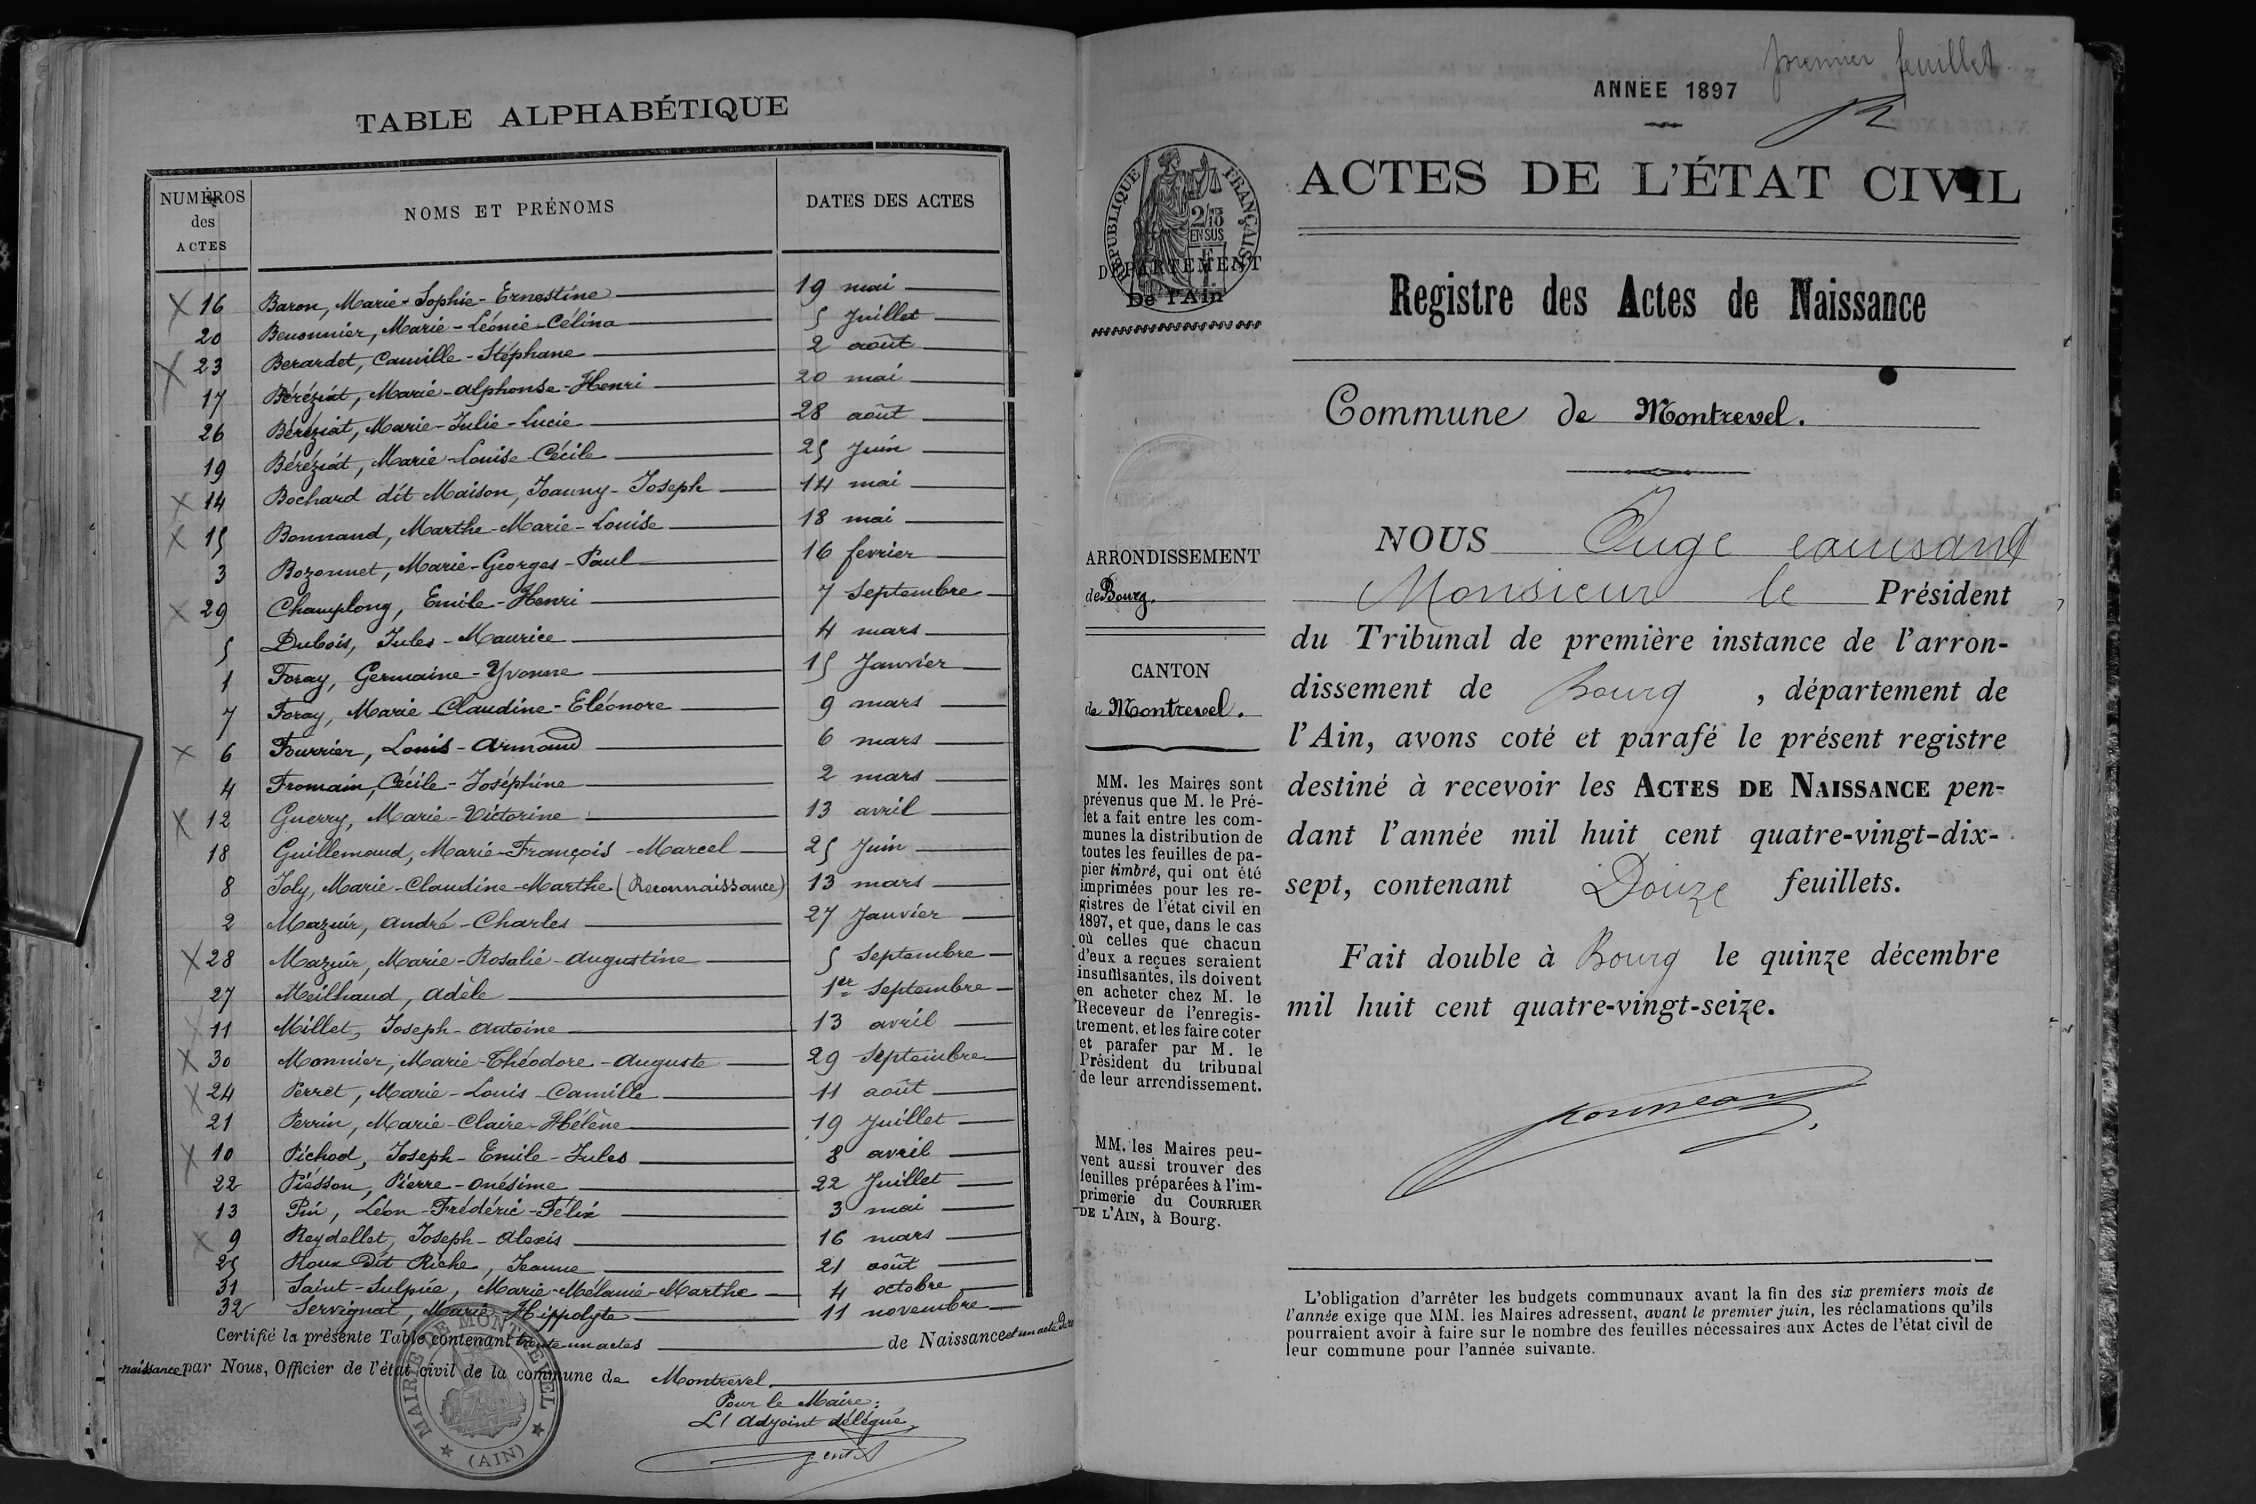 TABLE ALPHABÉTIQUE
NUMÉROS des ACTES
NOMS ET PRÉNOMS
DATES DES ACTES
16 Baron, Marie-Sophie-Ernestine 19 mai
20 Beuonnier, Marie-Léonie-Célina 5 Juillet
23 Berardet, Camille-Stéphane 2 août
17 Béréziat, Marie-Alphonse-Henri 20 mai
26 Béréziat, Marie-Julie-Lucie 28 août
19 Béréziat, Marie-Louise-Cécile 25 Juin
14 Bochard dit Maison, Joanny-Joseph 14 mai
15 Bonnand, Marthe-Marie-Louise 18 mai
3 Bozonnet, Marie-Georges-Paul 16 fevrier
29 Champlong, Emile-Henri 7 Septembre
5 Dubois, Jules-Maurice 4 mars
1 Foray, Germaine-Yvonne 15 Janvier
7 Foray, Marie-Claudine-Eléonore 9 mars
6 Fourrier, Louis-Armand 6 mars
4 Fromain, Cécile-Joséphine 2 mars
12 Guerry, Marie-Victorine 13 avril
18 Guillemaud, Marie-François-Marcel 25 Juin
8 Joly, Marie-Claudine-Marthe (Reconnaissance) 13 mars
2 Mazuir, André-Charles 27 Janvier
28 Mazuir, Marie-Rosalie-Augustine 5 Septembre
27 Meilhaud, Adèle 1er Septembre
11 Millet, Joseph-Antoine 13 avril
30 Monnier, Marie-Théodore-Auguste 29 Septembre
24 Perret, Marie-Louis-Camille 11 août
21 Perrin, Marie-Claire-Hélène 19 Juillet
10 Pichod, Joseph-Emile-Jules 8 avril
22 Piésson, Pierre-Onésime 22 Juillet
13 Pin, Léon-Frédéric-Félix 3 mai
9 Reydellet, Joseph-Alexis 16 mars
25 Roux Dit Riche, Jeanne 21 août
31 Saint-Sulpice, Marie-Mélanie-Marthe 4 octobre
32 Servignat, Marie-Hippolyte 11 novembre
Certifié la présente Table contenant trente un actes de Naissance et un acte de re
naissance par Nous, Officier de l'état civil de la commune de Montrevel
Pour le Maire:
L'Adjoint délégué,
MAIRIE DE MONTREVEL
(AIN)
premier feuillet
ANNÉE 1897
RÉPUBLIQUE FRANÇAISE
2/10 EN SUS
DÉPARTEMENT
De l'Ain
ACTES DE L'ÉTAT CIVIL
Registre des Actes de Naissance
Commune de Montrevel.
ARRONDISSEMENT
de Bourg.
CANTON
de Montrevel.
MM. les Maires sont
prévenus que M. le Pré-
fet a fait entre les com-
munes la distribution de
toutes les feuilles de pa-
pier timbré, qui ont été
imprimées pour les re-
gistres de l'état civil en
1897, et que, dans le cas
où celles que chacun
d'eux a reçues seraient
insuffisantes, ils doivent
en acheter chez M. le
Receveur de l'enregis-
trement, et les faire coter
et parafer par M. le
Président du tribunal
de leur arrondissement.
MM. les Maires peu-
vent aussi trouver des
feuilles préparées à l'im-
primerie du COURRIER
DE L'AIN, à Bourg.
NOUS Juge commis par
Monsieur le Président
du Tribunal de première instance de l'arron-
dissement de Bourg, département de
l'Ain, avons coté et parafé le présent registre
destiné à recevoir les ACTES DE NAISSANCE pen-
dant l'année mil huit cent quatre-vingt-dix-
sept, contenant Douze feuillets.
Fait double à Bourg le quinze décembre
mil huit cent quatre-vingt-seize.
L'obligation d'arrêter les budgets communaux avant la fin des six premiers mois de
l'année exige que MM. les Maires adressent, avant le premier juin, les réclamations qu'ils
pourraient avoir à faire sur le nombre des feuilles nécessaires aux Actes de l'état civil de
leur commune pour l'année suivante.